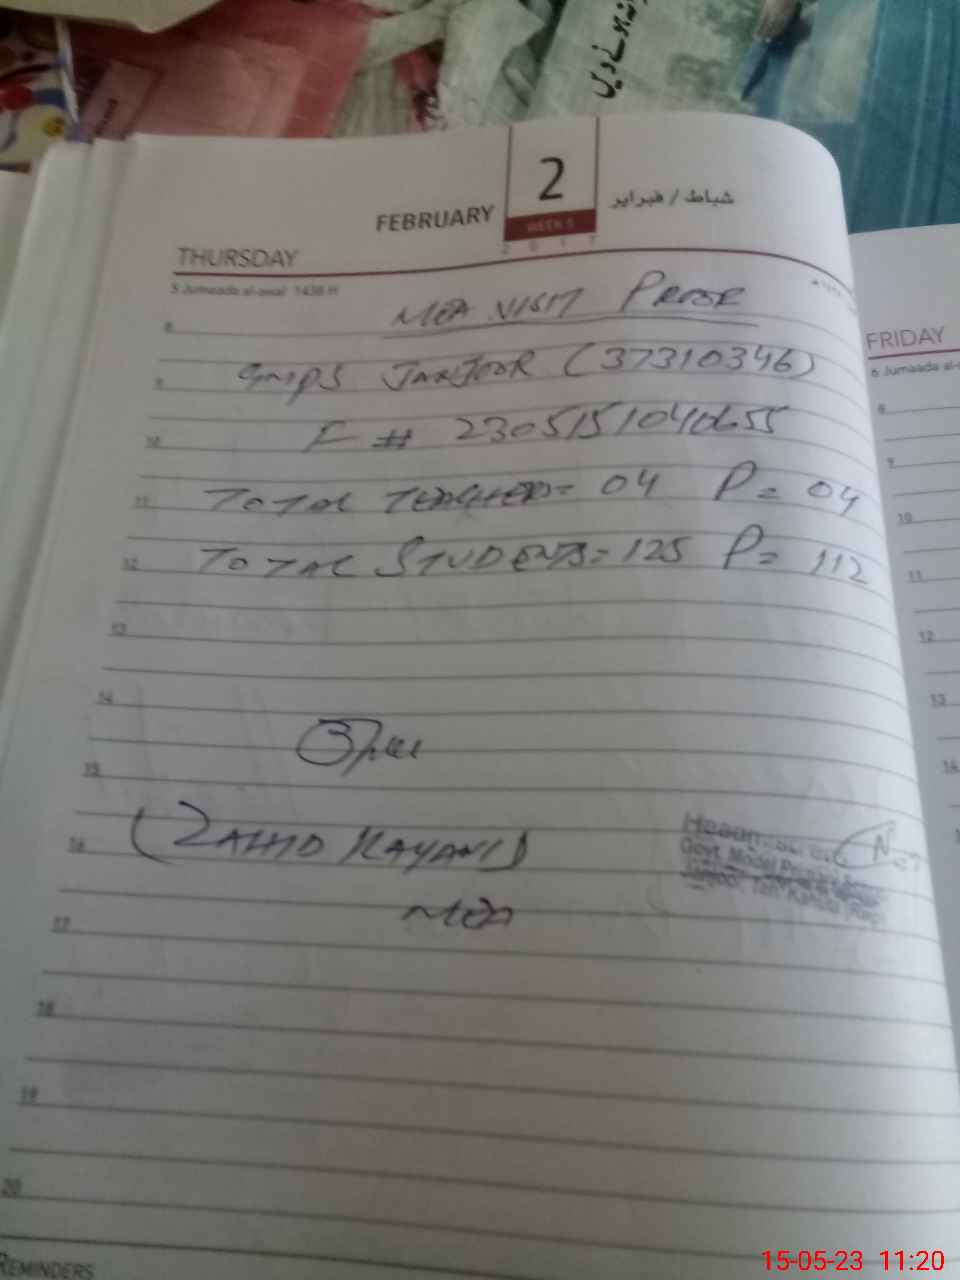 FEBRUARY 2 شباط / فبراير
WEEK 5
2 0 1 7
THURSDAY
5 Jumaada al-awal 1438 H
MEA VISIT PROOF
8
9 GMPS JANJOOR (37310346)
10 F # 2305151040655
11 TOTAL TEACHERS= 04 P= 04
12 TOTAL STUDENTS= 125 P= 112
13
14
15
16 (ZAHID KAYANI)
MEA
Govt. Model Primary School
17
18
19
20
REMINDERS
FRIDAY
6 Jumaada al-
8
9
10
11
12
13
14
15-05-23 11:20